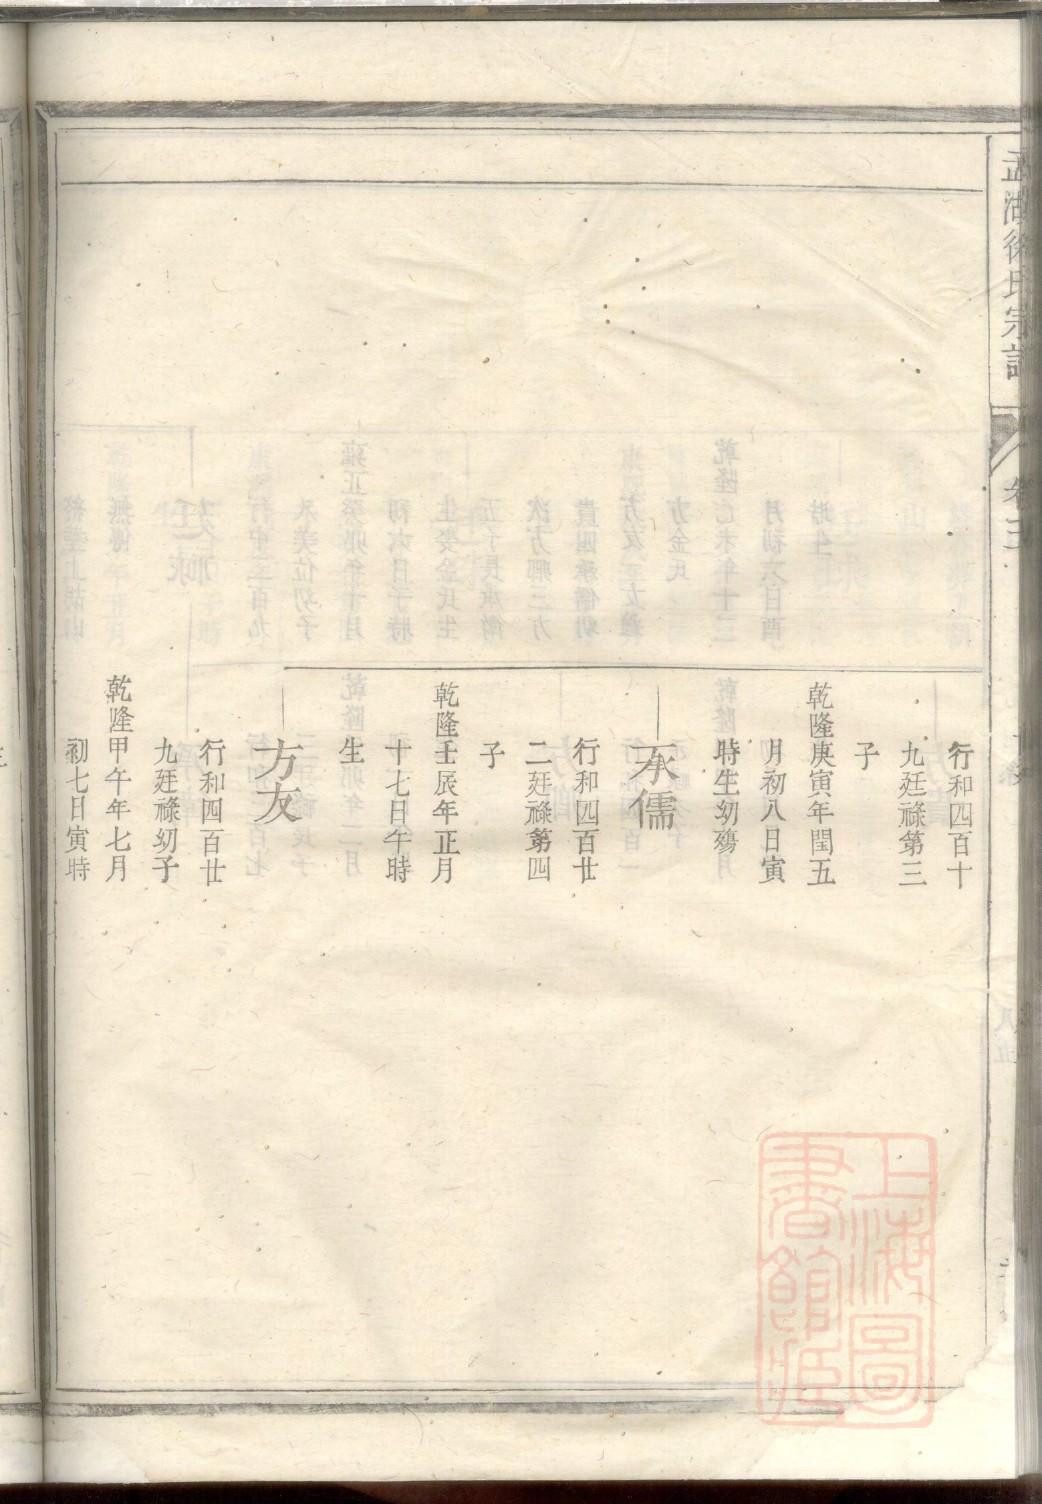 湖徐氏宗譜
卷三
行和四百十
九廷祿第三
子
乾隆庚寅年閏五
月初八日寅
時生幼殤
承儒
行和四百廿
二廷祿第四
子
乾隆壬辰年正月
十七日午時
生
方友
行和四百廿
九廷祿幼子
乾隆甲午年七月
初七日寅時
上海圖
書館藏